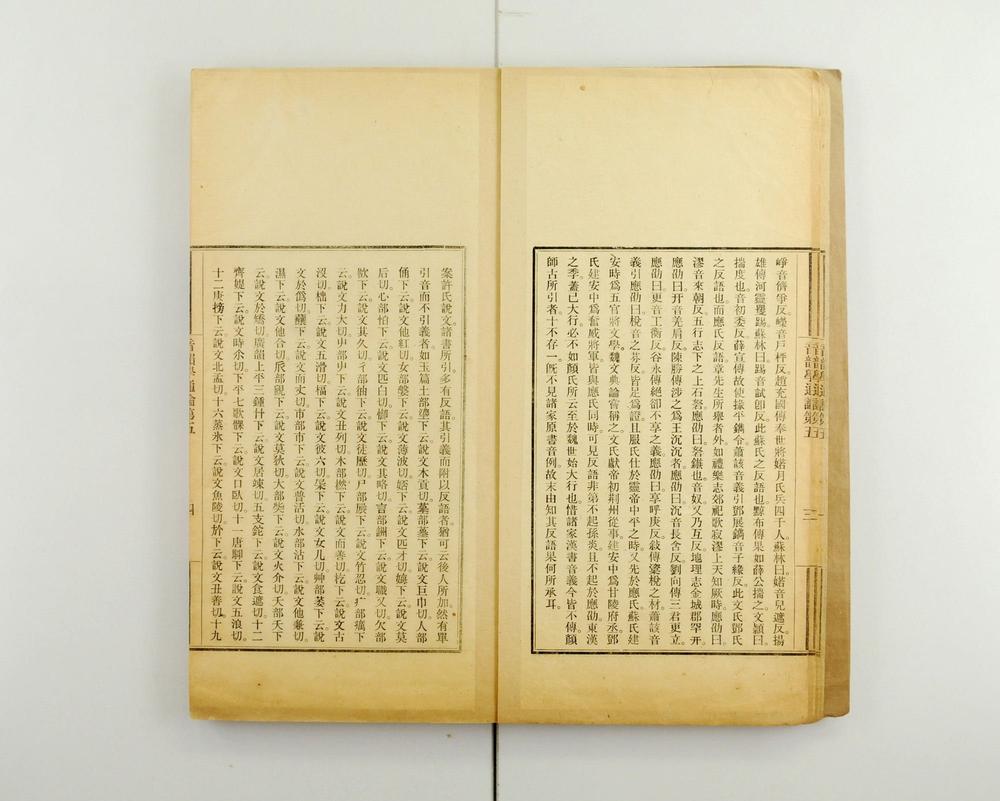 崢音儕爭反嶸音戶枰反趙充國傳奉世將婼月氏兵四千人蘇林曰婼音兒遮反揚
雄傳河靈矍踢蘇林曰踢音試卽反此蘇氏之反語也黥布傳果如薛公揣之文穎曰
揣度也音初委反薛宣傳故使掾平鐫令蕭該音義引鄧展鐫音子緣反此文氏鄧氏
之反語也而應氏反語章先生所舉者外如禮樂志郊祀歌寂漻上天知厥時應劭曰
漻音來朝反五行志下之上石砮應劭曰砮鏃也音奴又乃互反地理志金城郡罕幵
應劭曰幵音羌肩反陳勝傳涉之爲王沉沉者應劭曰沉音長含反劉向傳三君更立
應劭曰更音工衡反谷永傳絕卻不享之義應劭曰享呼庚反敍傳楶梲之材蕭該音
義引應劭曰梲音之芬反皆足爲證且服氏仕於靈帝中平之時又先於應氏蘇氏建
安時爲五官將文學魏文典論嘗稱之文氏獻帝初荆州從事建安中爲甘陵府丞鄧
氏建安中爲奮威將軍皆與應氏同時可見反語非第不起孫炎且不起於應劭東漢
之季蓋已大行必不如顏氏所云至於魏世始大行也惜諸家漢書音義今皆不傳顏
師古所引者十不存一旣不見諸家原書音例故末由知其反語果何所承耳
音韻學通論第五
三
案許氏說文諸書所引多有反語其引義而附以反語者猶可云後人所加然有單
引音而不引義者如玉篇土部塦下云說文木貢切墓部墓下云說文亘巾切人部
俑下云說文他紅切女部媻下云說文薄波切娝下云說文匹才切嬈下云說文莫
后切心部怕下云說文匹白切御下云說文其略切言部詶下云說文職又切欠部
歍下云說文其久切彳部䄂下云說文徒歷切尸部㞡下云說文竹忍切疒部癘下
云說文力大切屮部屮下云說文丑列切木部橪下云說文而善切杚下云說文古
沒切柮下云說文五滑切楅下云說文彼六切桇下云說文女几切艸部荽下云說
文於爲切蘸下云說文而丈切市部市下云說文普活切水部沾下云說文他兼切
濕下云說文他合切𠂢部覛下云說文莫狄切大部奊下云說文火介切夭部夭下
云說文於嬌切廣韻上平三鍾什下云說文居竦切五支鉈下云說文食遮切十二
齊媞下云說文時尒切下平七歌髁下云說文口臥切十一唐䮾下云說文五浪切
十二庚搒下云說文北孟切十六蒸氷下云說文魚陵切㫃下云說文丑善切十九
音韻學通論第五
四